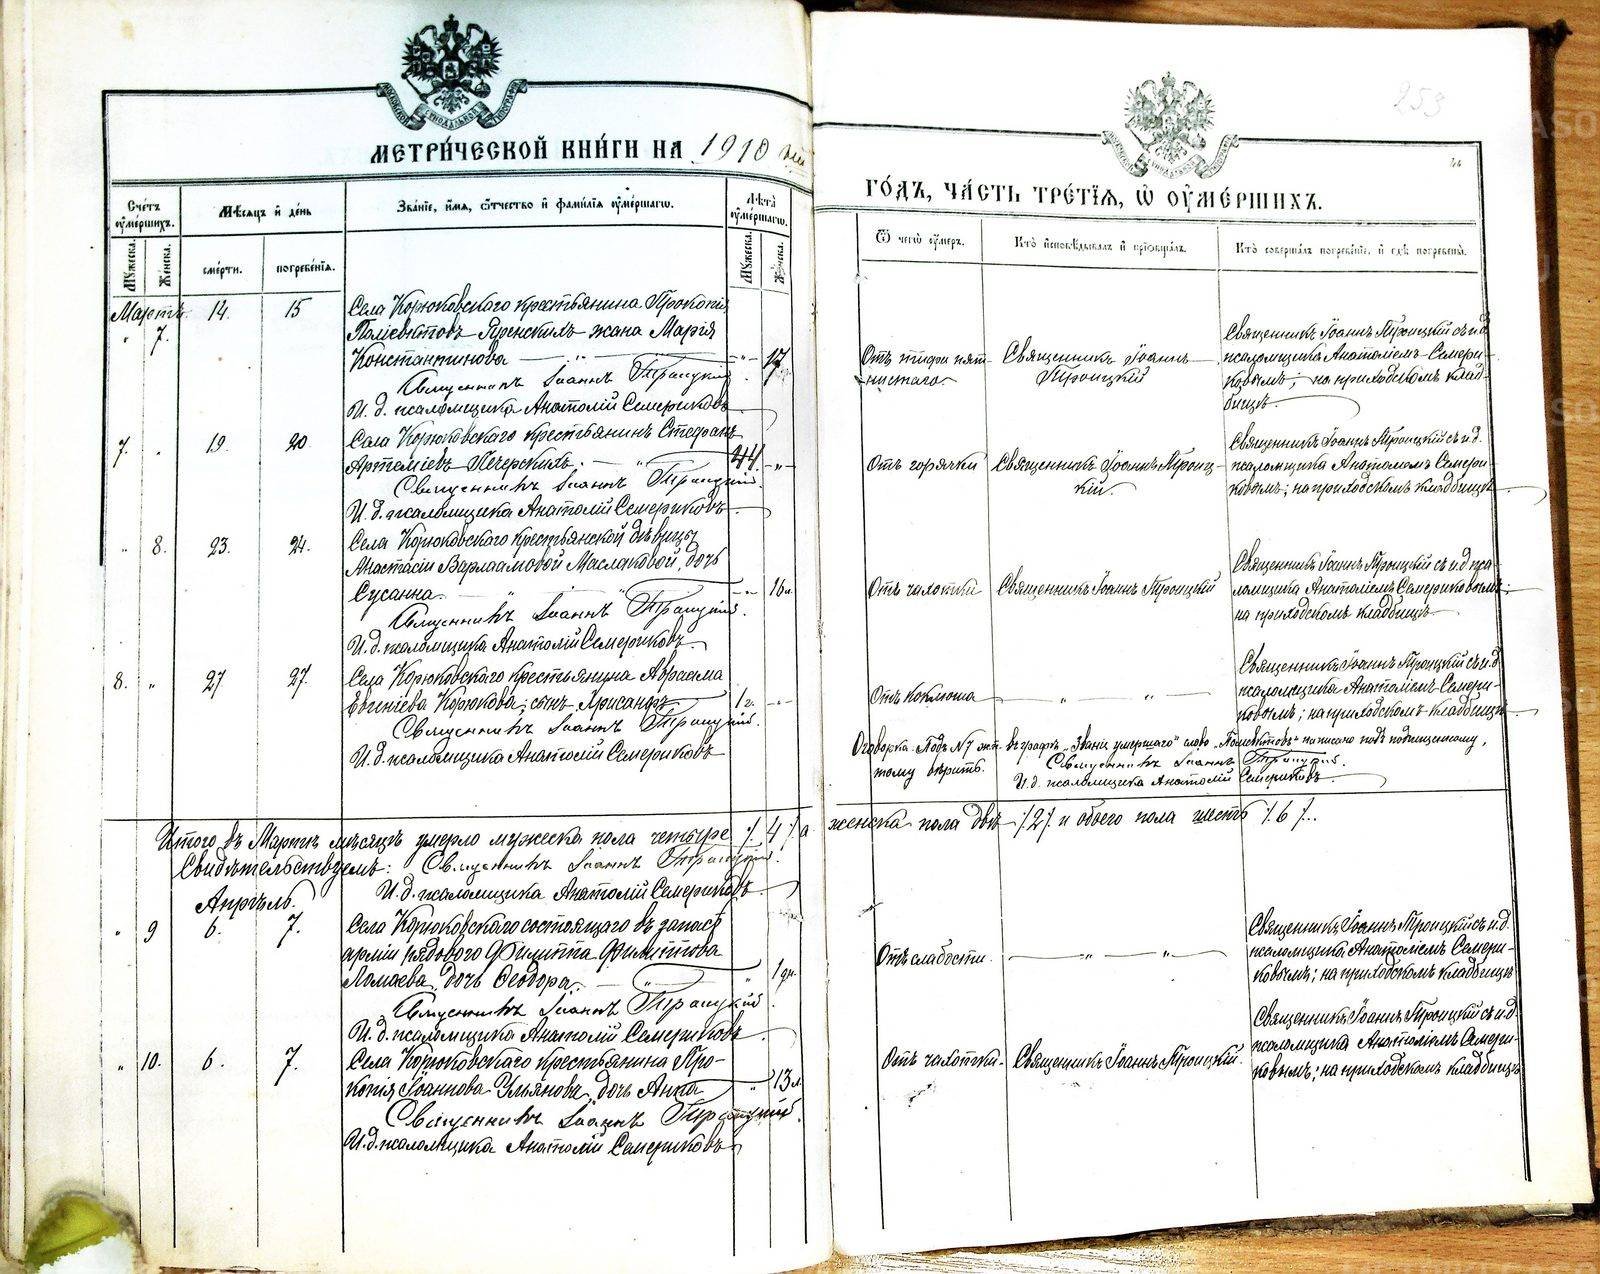 МЕТРИЧЕСКОЙ КНИГИ НА 1910 ый
Счетъ умершихъ.
Мѣсяцъ и день
Званіе, имя, отчество и фамилія умершаго.
Лѣта умершаго.
Мужеска. Женска.
смерти. погребенія.
Мужеска. Женска.
Мартъ. 14. 15 Села Корюковскаго крестьянина Прокопія
" 7. Поліевктовъ Яренскихъ жена Марія
Константинова " 17
Священникъ Іоаннъ Троицкій
И. д. псаломщика Анатолій Семериковъ
7. " 19. 20. Села Корюковскаго крестьянинъ Стефанъ
Артеміевъ Печерскихъ. 44. "
Священникъ Іоаннъ Троицкій.
И. д. псаломщика Анатолій Семериковъ
" 8. 23. 24. Села Корюковскаго крестьянской дѣвицы
Анастасіи Варлаамовой Маслаковой, дочь
Сусанна. " 16
Священникъ Іоаннъ Троицкій.
И. д. псаломщика Анатолій Семериковъ.
8. " 27 27. Села Корюковскаго крестьянина Авраама
Евгеніева Корюкова, сынъ Хрисанфъ 1 г. "
Священникъ Іоаннъ Троицкій.
И. д. псаломщика Анатолій Семериковъ
Итого въ Мартѣ мѣсяцѣ умерло мужеска пола четыре /4/ а
Свидѣтельствуемъ: Священникъ Іоаннъ Троицкій.
И. д. псаломщика Анатолій Семериковъ.
Апрѣль.
" 9 6. 7. Села Корюковскаго состоящаго въ запасѣ
арміи рядового Филиппа Филиппова
Ломаева, дочь Ѳеодора. " 1 дн.
Священникъ Іоаннъ Троицкій
И. д. псаломщика Анатолій Семериковъ
" 10. 6. 7. Села Корюковскаго крестьянина Про-
копія Іоаннова Ульянова, дочь Анна " 13 л.
Священникъ Іоаннъ Троицкій.
И. д. псаломщика Анатолій Семериковъ
253
ГОДЪ, ЧАСТЬ ТРЕТІЯ, Ѡ УМЕРШИХЪ.
Ѿ чего умеръ.
Кто исповѣдывалъ и пріобщалъ.
Кто совершалъ погребеніе, и гдѣ погребены.
Отъ тифа пят-
нистаго
Священникъ Іоаннъ
Троицкій
Священникъ Іоаннъ Троицкій съ и.д.
псаломщика Анатоліемъ Семери-
ковымъ; на приходскомъ клад-
бищѣ.
Отъ горячки
Священникъ Іоаннъ Троиц-
кій.
Священникъ Іоаннъ Троицкій съ и.д.
псаломщика Анатоліемъ Семери-
ковымъ; на приходскомъ кладбищѣ
Отъ чахотки
Священникъ Іоаннъ Троицкій
Священникъ Іоаннъ Троицкій съ и.д. пса-
ломщика Анатоліемъ Семериковымъ;
на приходскомъ кладбищѣ
Отъ коклюша
" "
Священникъ Іоаннъ Троицкій съ и.д.
псаломщика Анатоліемъ Семери-
ковымъ; на приходскомъ кладбищѣ
Оговорка. Подъ № 7 жен. въ графѣ „Званіе умершаго" слово „Поліевктовъ" написано по подчищенному,
тому вѣрить. Священникъ Іоаннъ Троицкій.
И. д. псаломщика Анатолій Семериковъ.
женска пола двѣ /2/ и обоего пола шесть /6/.
Отъ слабости.
" "
Священникъ Іоаннъ Троицкій съ и.д.
псаломщика Анатоліемъ Семери-
ковымъ; на приходскомъ кладбищѣ
Отъ чахотки.
Священникъ Іоаннъ Троицкій.
Священникъ Іоаннъ Троицкій съ и.д.
псаломщика Анатоліемъ Семери-
ковымъ; на приходскомъ кладбищѣ